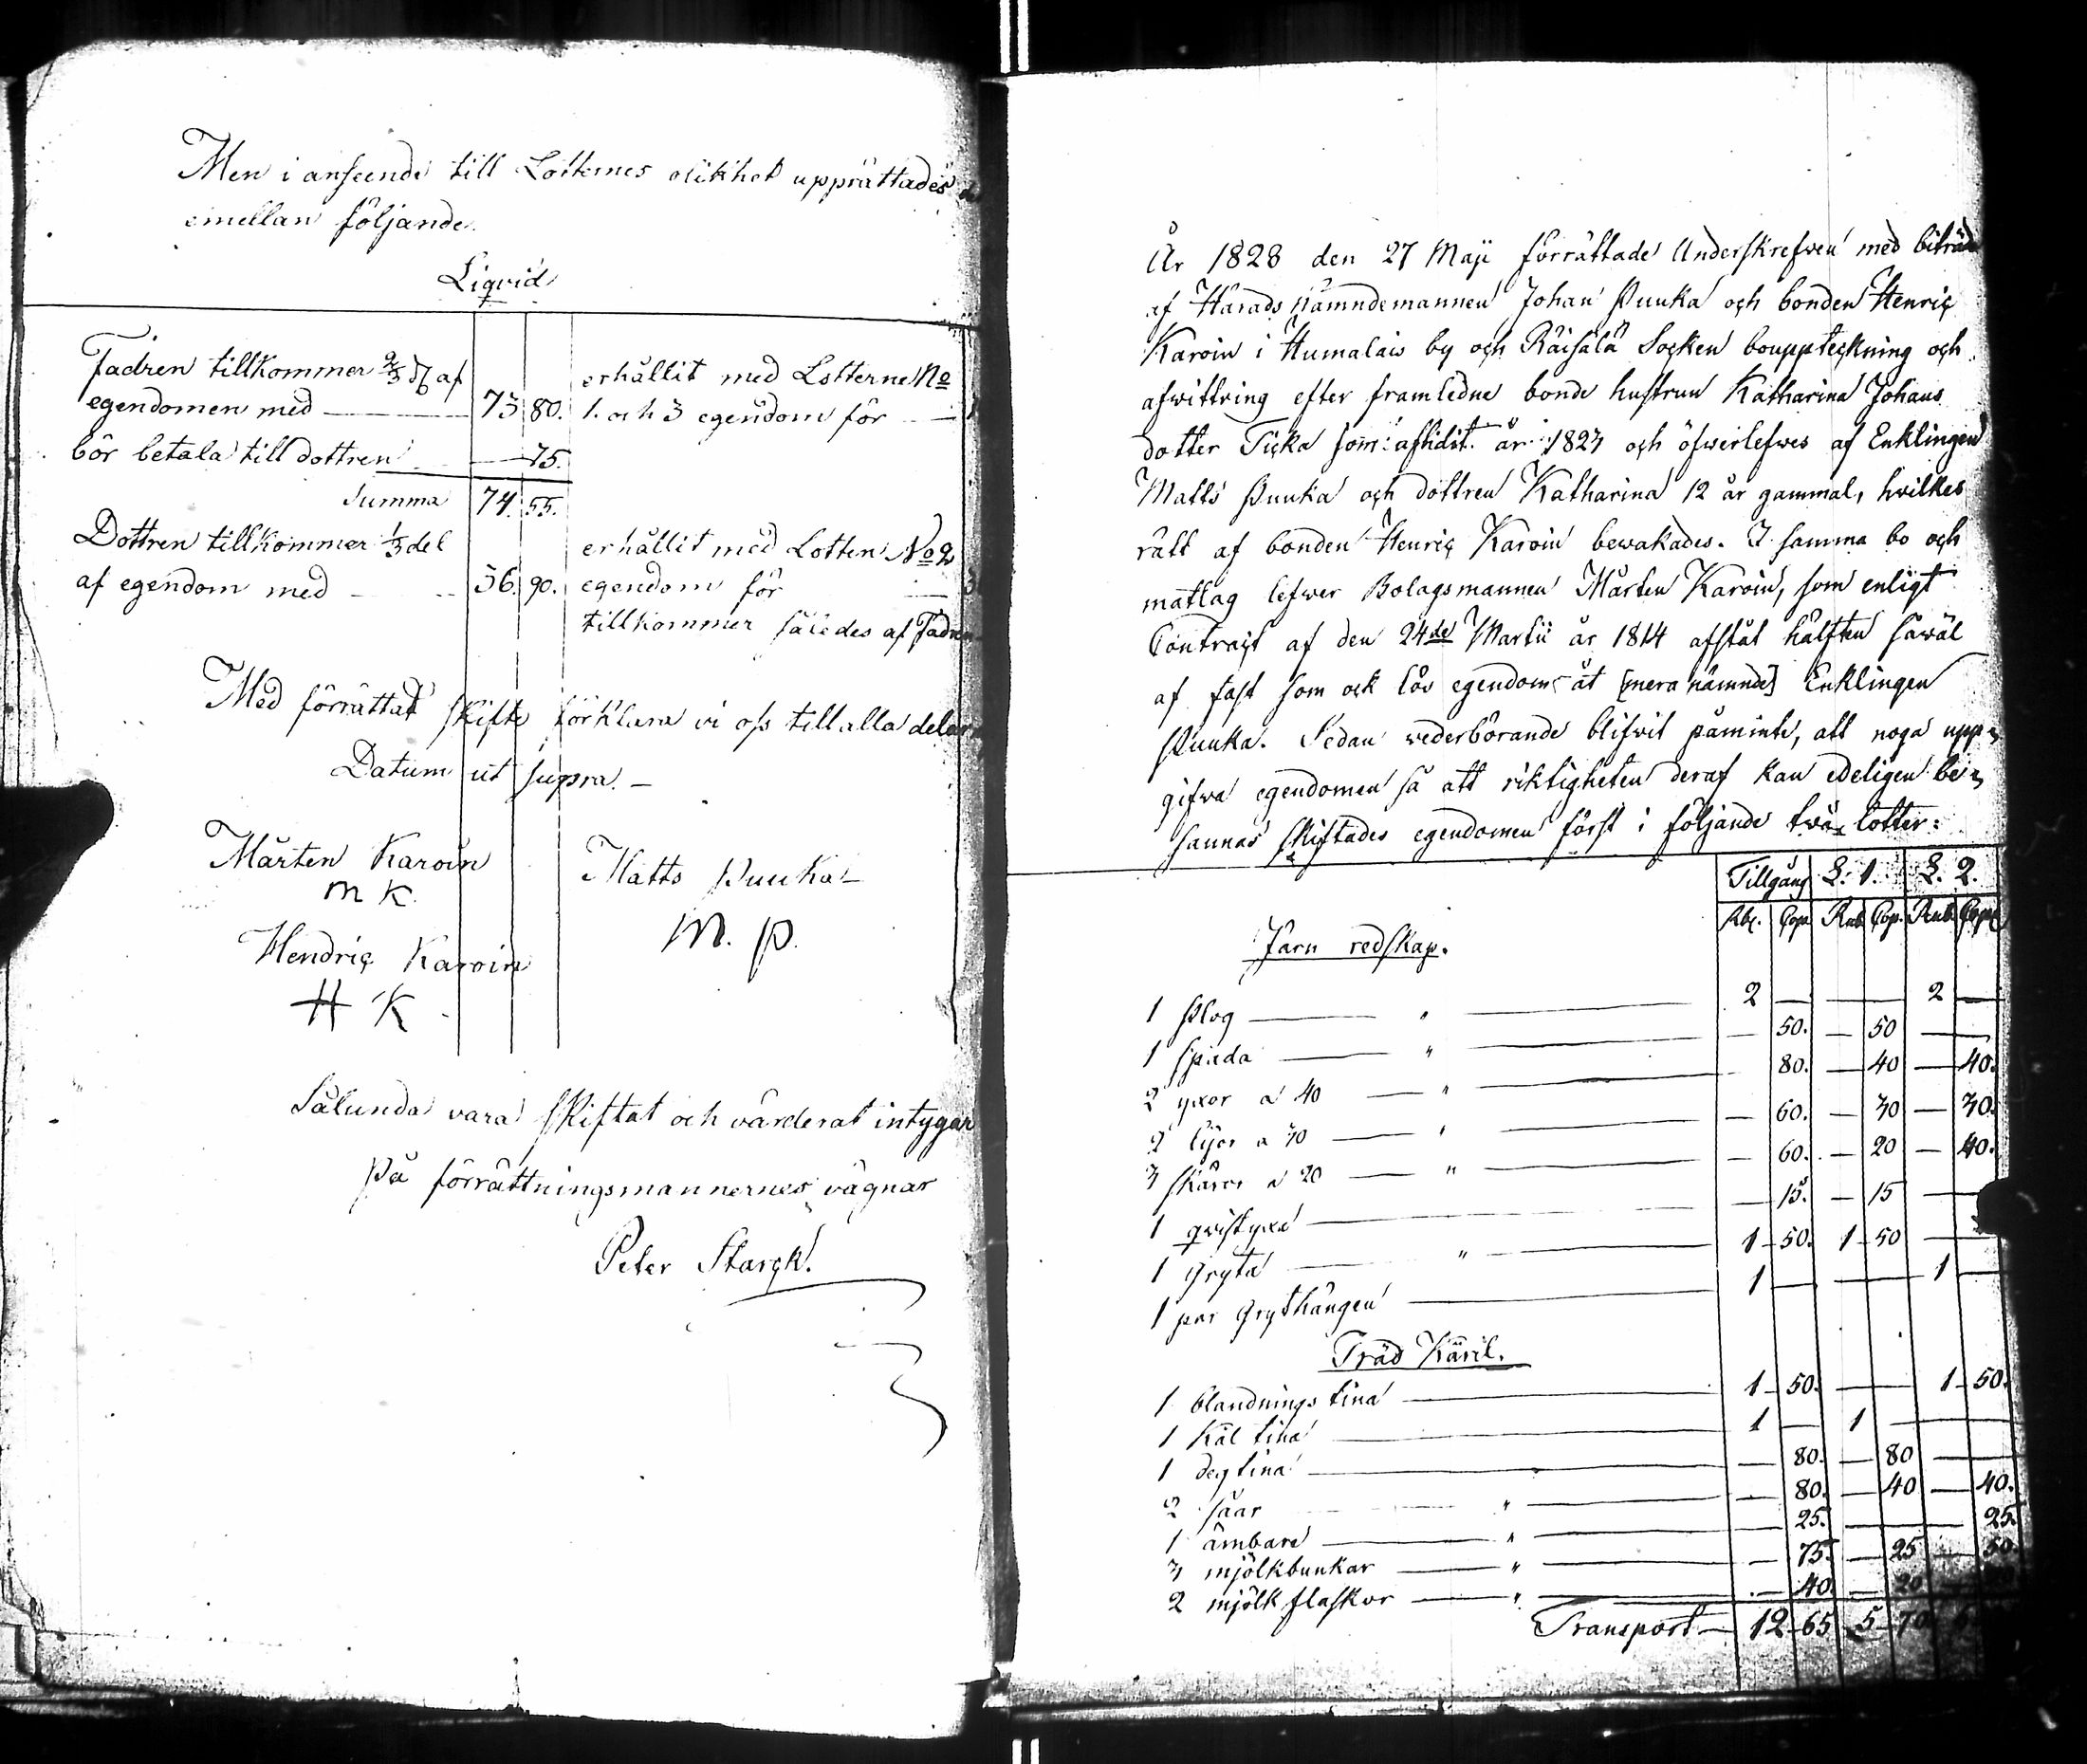 Men i anseende till Lotternes olikhet upprättades
emellan följande
Liqvid
Fadren tillkommer 2/3 del af
egendomen med — 73 80.
bör betala till dottren — 75.
Summa 74. 55.
Dottren tillkommer 1/3 del
af egendom med — 36. 90.
erhållit med Lotterne No
1. och 3 egendom för —
erhållit med Lotten No 2
egendom för —
tillkommer således af Fadren
Med förrättat skifte förklara vi oss till alla delar
Datum ut supra. —
Mårten Karoin
M K.
Hendric Karoin
H K
Matts Puuka
M. P.
Sålunda vara skiftat och värderat intygar
På förrättningsmannernes vägnar
Peter Starck.
År 1828 den 27 Maji förrättade Underskrefwen med biträde
af Härads Nämndemannen Johan Puuka och bonden Henric
Karoin i Humalais by och Räisälä Socken bouppteckning och
afwittring efter framledne bonde hustrun Katharina Johans
dotter Ticka som afledit år 1823 och öfwerlefwes af Enklingen
Matts Puuka och dottren Katharina 12 år gammal, hvilkes
rätt af bonden Henric Karoin bewakades. I samma bo och
matlag lefwer Bolagsmannen Mårten Karoin, som enligt
Contract af den 24de Martii år 1814 afstått hälften såwäl
af fast som ock lös egendom åt [mera nämnde] Enklingen
Puuka. Sedan wederbörande blifvit påminte, att noga upp=
gifwa egendomen så att riktigheten deraf kan edeligen be=
sannas skiftades egendomen först i följande twå lotter:
Tillgång L. 1. L. 2.
Rbl. Cop. Rub Cop. Rub Cop
Jarn redskap.
1 Plog — " — 2 — — — 2 —
1 Spada — " — — 50. — 50 — —
2 yxor a 40 — " — — 80. — 40 — 40.
2 lijor a 30 — " — — 60. — 30 — 30.
3 skäror a 20 — " — — 60. — 20 — 40.
1 qvistyxa — — 15. — 15 — —
1 Gryta — " — 1 - 50. 1 - 50 — —
1 par Grythängen — 1 — — — 1 —
Träd Käril.
1 blandnings tina — 1 - 50. — — 1 - 50.
1 Kål tina — 1 — 1 — — —
1 deg tina — — 80. — 80 — —
2 såar — " — — 80. — 40 — 40.
1 ämbare — " — — 25. — — — 25.
3 mjölkbunkar — " — — 75. — 25 — 50.
2 mjölk flaskor — " — — 40. — 20 —
Transport — 12 - 65 5 - 70 6